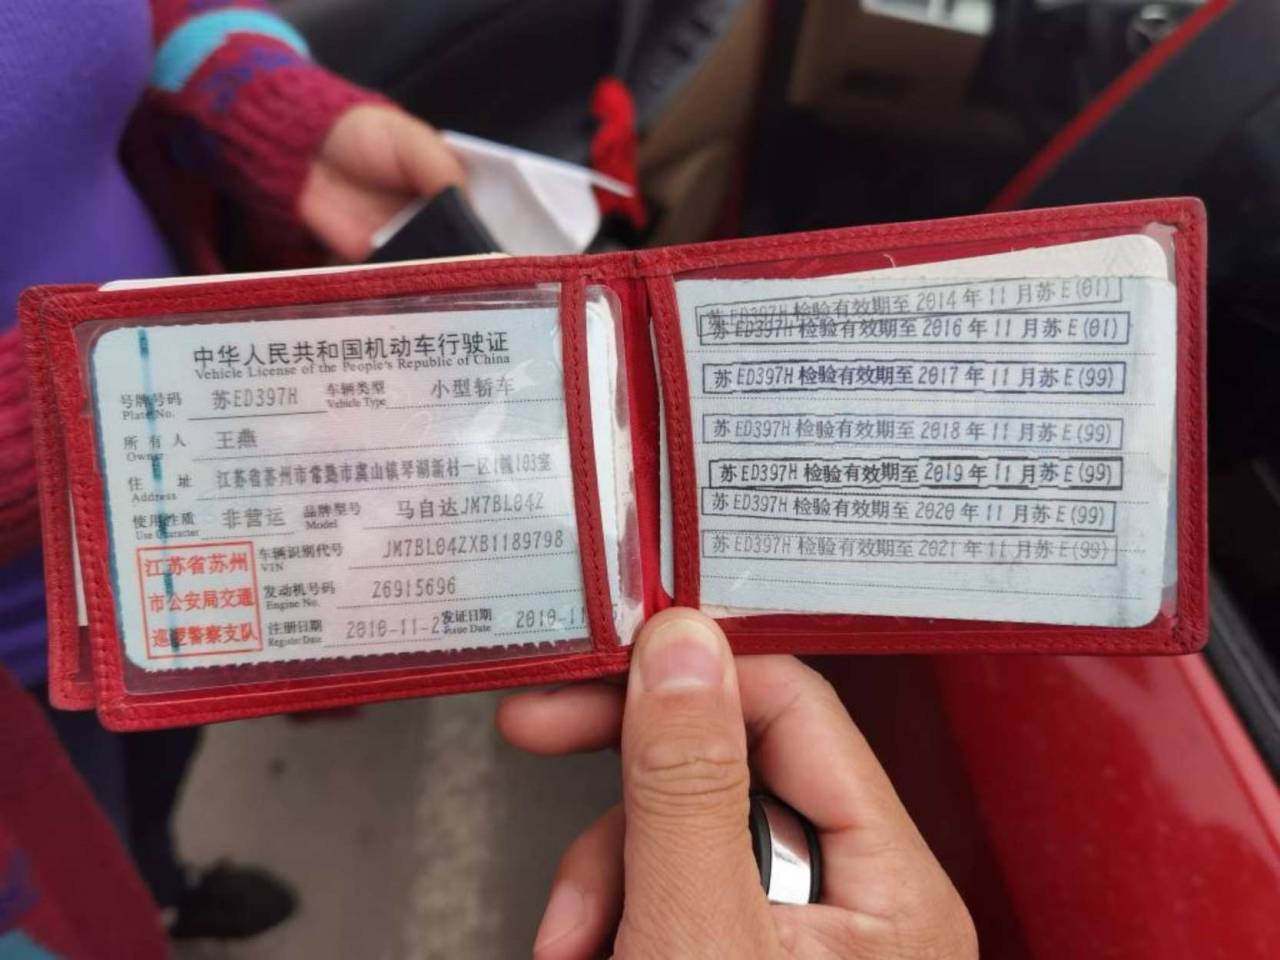 中华人民共和国机动车行驶证
Vehicle License of the People's Republic of China
号牌号码 苏ED397H 车辆类型 小型轿车
Plate No. Vehicle Type
所有人 王燕
Owner
住址 江苏省苏州市常熟市虞山镇琴湖新村一区1幢103室
Address
使用性质 非营运 品牌型号 马自达JM7BL04Z
Use Character Model
江苏省苏州
市公安局交通
巡逻警察支队
车辆识别代号 JM7BL04ZXB1189798
VIN
发动机号码 Z6915696
Engine No.
注册日期 2010-11-2 发证日期 2010-11
Register Date Issue Date
苏ED397H 检验有效期至 2014 年 11 月苏 E (01)
苏 ED397H 检验有效期至 2016 年 11 月苏 E (01)
苏 ED397H 检验有效期至 2017 年 11 月苏 E (99)
苏 ED397H 检验有效期至 2018 年 11 月苏 E (99)
苏 ED397H 检验有效期至 2019 年 11 月苏 E (99)
苏 ED397H 检验有效期至 2020 年 11 月苏 E (99)
苏 ED397H 检验有效期至 2021 年 11 月苏 E (99)